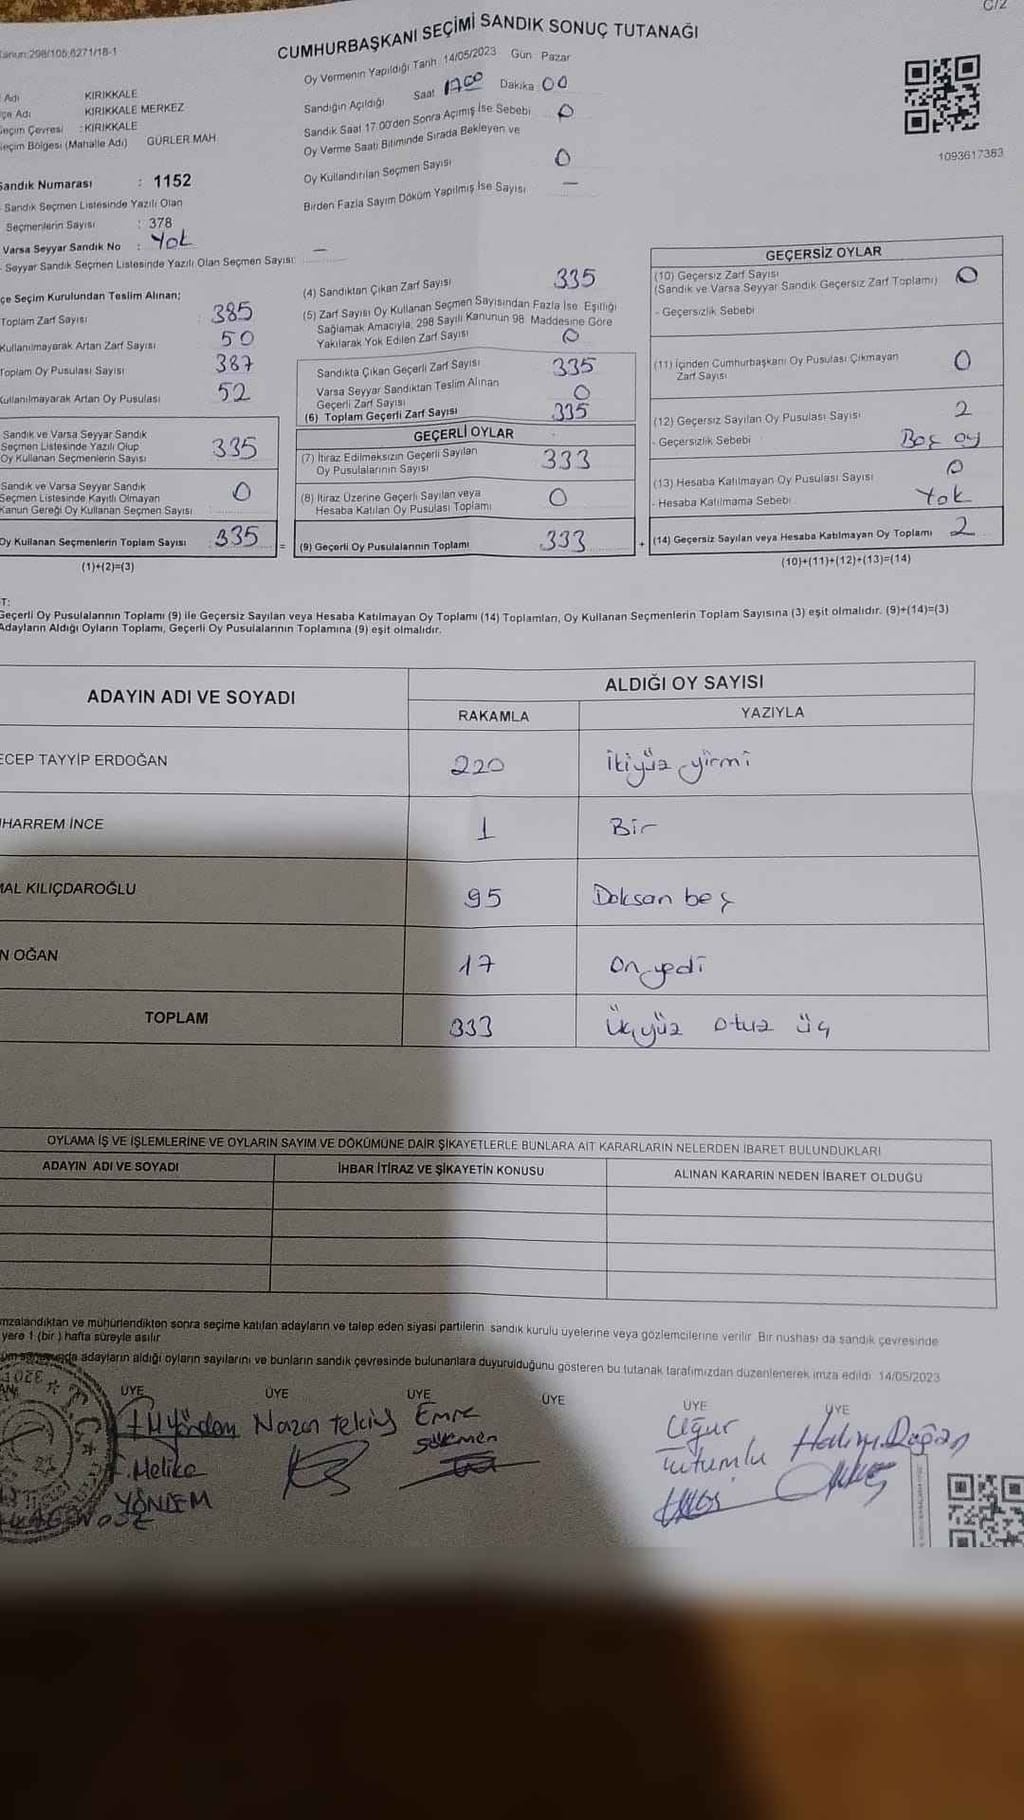 C/2
CUMHURBAŞKANI SEÇİMİ SANDIK SONUÇ TUTANAĞI
Oy Vermenin Yapıldığı Tarih 14/05/2023 Gün Pazar
Sandığın Açıldığı Saat 1700 Dakika 00
Sandık Saat 17:00'den Sonra Açımış İse Sebebi 0
Oy Verme Saati Bitiminde Sırada Bekleyen ve
Oy Kullandırılan Seçmen Sayısı 0
Birden Fazla Sayım Döküm Yapılmış İse Sayısı —
1093617383
Adı KIRIKKALE
çe Adı KIRIKKALE MERKEZ
eçim Çevresi : KIRIKKALE
eçim Bölgesi (Mahalle Adı) GÜRLER MAH
Sandık Numarası : 1152
- Sandık Seçmen Listesinde Yazılı Olan
Seçmenlerin Sayısı : 378
Varsa Seyyar Sandık No : Yok
- Seyyar Sandık Seçmen Listesinde Yazılı Olan Seçmen Sayısı: —
çe Seçim Kurulundan Teslim Alınan;
Toplam Zarf Sayısı : 385
Kullanılmayarak Artan Zarf Sayısı 50
Toplam Oy Pusulası Sayısı 387
Kullanılmayarak Artan Oy Pusulası 52
Sandık ve Varsa Seyyar Sandık
Seçmen Listesinde Yazılı Olup
Oy Kullanan Seçmenlerin Sayısı 335
Sandık ve Varsa Seyyar Sandık
Seçmen Listesinde Kayıtlı Olmayan
Kanun Gereği Oy Kullanan Seçmen Sayısı 0
Oy Kullanan Seçmenlerin Toplam Sayısı 335 =
(1)+(2)=(3)
(4) Sandıktan Çıkan Zarf Sayısı 335
(5) Zarf Sayısı Oy Kullanan Seçmen Sayısından Fazla İse Eşitliği
Sağlamak Amacıyla, 298 Sayılı Kanunun 98. Maddesine Göre
Yakılarak Yok Edilen Zarf Sayısı 0
Sandıkta Çıkan Geçerli Zarf Sayısı 335
Varsa Seyyar Sandıktan Teslim Alınan
Geçerli Zarf Sayısı 0
(6) Toplam Geçerli Zarf Sayısı 335
GEÇERLİ OYLAR
(7) İtiraz Edilmeksizin Geçerli Sayılan
Oy Pusulalarının Sayısı 333
(8) İtiraz Üzerine Geçerli Sayılan veya
Hesaba Katılan Oy Pusulası Toplamı 0
(9) Geçerli Oy Pusulalarının Toplamı 333 +
GEÇERSİZ OYLAR
(10) Geçersiz Zarf Sayısı
(Sandık ve Varsa Seyyar Sandık Geçersiz Zarf Toplamı) 0
- Geçersizlik Sebebi
(11) İçinden Cumhurbaşkanı Oy Pusulası Çıkmayan
Zarf Sayısı 0
(12) Geçersiz Sayılan Oy Pusulası Sayısı 2
- Geçersizlik Sebebi Boş oy
(13) Hesaba Katılmayan Oy Pusulası Sayısı 0
- Hesaba Katılmama Sebebi Yok
(14) Geçersiz Sayılan veya Hesaba Katılmayan Oy Toplamı 2
(10)+(11)+(12)+(13)=(14)
T:
Geçerli Oy Pusulalarının Toplamı (9) ile Geçersiz Sayılan veya Hesaba Katılmayan Oy Toplamı (14) Toplamları, Oy Kullanan Seçmenlerin Toplam Sayısına (3) eşit olmalıdır. (9)+(14)=(3)
Adayların Aldığı Oyların Toplamı, Geçerli Oy Pusulalarının Toplamına (9) eşit olmalıdır.
ADAYIN ADI VE SOYADI ALDIĞI OY SAYISI
RAKAMLA YAZIYLA
ECEP TAYYİP ERDOĞAN 220 İkiyüz yirmi
UHARREM İNCE 1 Bir
MAL KILIÇDAROĞLU 95 Doksan beş
N OĞAN 17 On yedi
TOPLAM 333 Üçyüz otuz üç
OYLAMA İŞ VE İŞLEMLERİNE VE OYLARIN SAYIM VE DÖKÜMÜNE DAİR ŞİKAYETLERLE BUNLARA AİT KARARLARIN NELERDEN İBARET BULUNDUKLARI
ADAYIN ADI VE SOYADI İHBAR İTİRAZ VE ŞİKAYETİN KONUSU ALINAN KARARIN NEDEN İBARET OLDUĞU
mzalandıktan ve mühürlendikten sonra seçime katılan adayların ve talep eden siyasi partilerin sandık kurulu üyelerine veya gözlemcilerine verilir. Bir nushası da sandık çevresinde
yere 1 (bir ) hafta süreyle asılır.
adayların aldığı oyların sayılarını ve bunların sandık çevresinde bulunanlara duyurulduğunu gösteren bu tutanak tarafımızdan düzenlenerek imza edildi. 14/05/2023
ÜYE ÜYE ÜYE ÜYE ÜYE ÜYE
Nazan Telciş Emre Uğur Halim Doğan
Sökmen Tutumlu
F. Melike
YÖNDEM